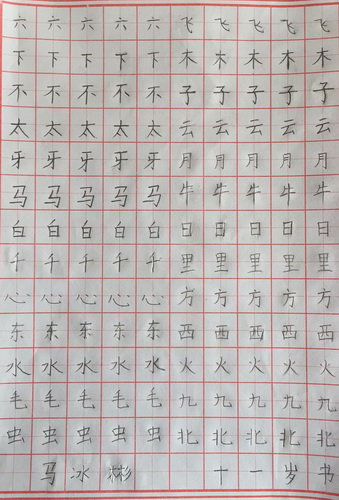 六六六六六飞飞飞飞飞
下下下下下木木木木木
不不不不不子子子子子
太太太太太云云云云云
牙牙牙牙牙月月月月月
马马马马马牛牛牛牛牛
白白白白白日日日日日
千千千千千里里里里里
心心心心心方方方方方
东东东东东西西西西西
水水水水水火火火火火
毛毛毛毛毛九九九九九
虫虫虫虫虫北北北北北
马冰彬十一岁书